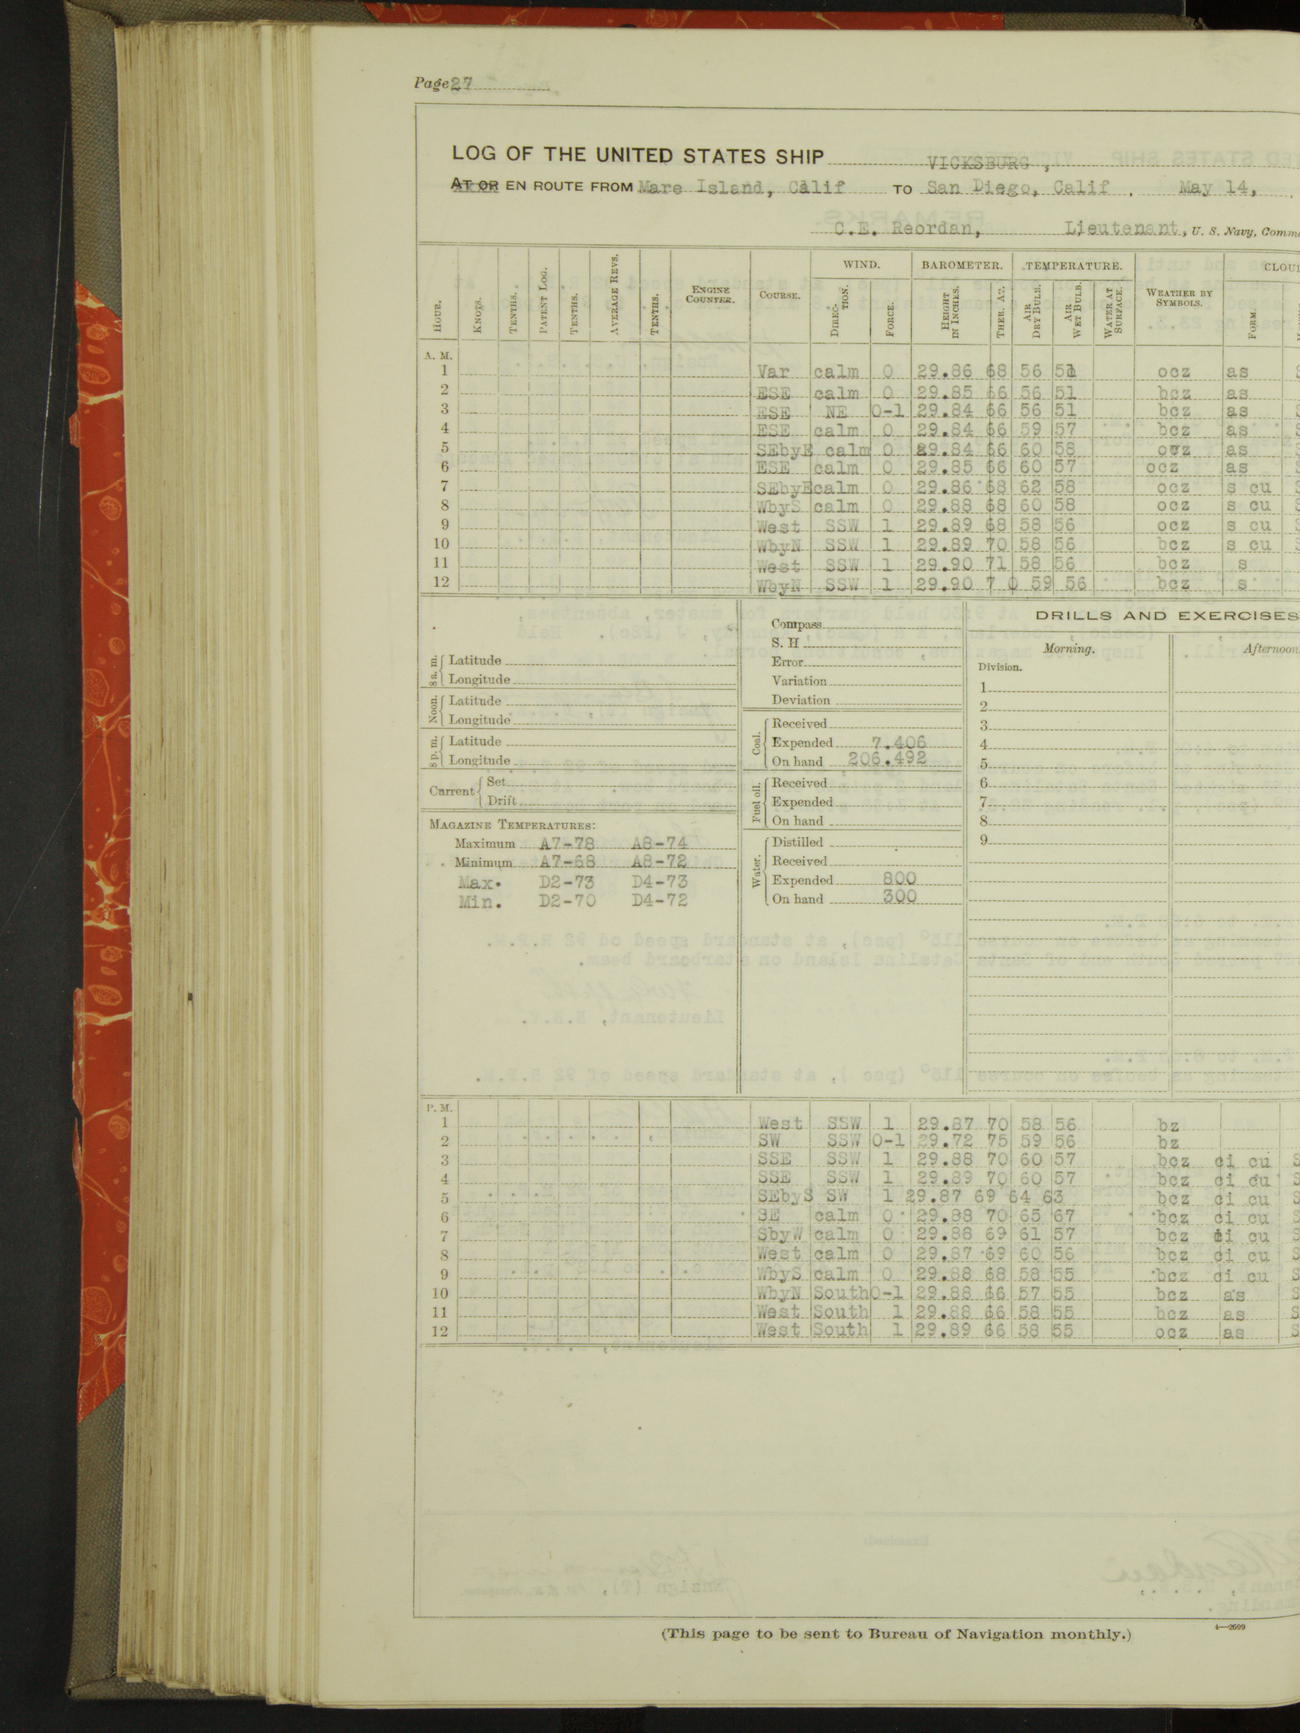 Page 27
LOG OF THE UNITED STATES SHIP VICKSBURG ,
AT OR EN ROUTE FROM Mare Island, Calif TO San Diego, Calif , May 14,
C.E. Reordan, Lieutenant, U. S. Navy, Comm
HOUR. KNOTS. TENTHS. PATENT LOG. TENTHS. AVERAGE REVS. TENTHS. ENGINE COUNTER. COURSE. WIND. DIRECTION. FORCE. BAROMETER. HEIGHT IN INCHES. THER. AT. TEMPERATURE. AIR DRY BULB. AIR WET BULB. WATER AT SURFACE. WEATHER BY SYMBOLS. CLOU FORM.
A. M.
1 Var calm 0 29.86 68 56 51 ocz as S
2 ESE calm 0 29.85 66 56 51 bcz as
3 ESE NE 0-1 29.84 66 56 51 bcz as S
4 ESE calm 0 29.84 66 59 57 bcz as S
5 SEbyE calm 0 29.84 66 60 58 ocz as S
6 ESE calm 0 29.85 66 60 57 ocz as S
7 SEbyE calm 0 29.86 68 62 58 ocz s cu S
8 WbyS calm 0 29.88 68 60 58 ocz s cu S
9 West SSW 1 29.89 68 58 56 ocz s cu S
10 WbyN SSW 1 29.89 70 58 56 bcz s cu S
11 West SSW 1 29.90 71 58 56 bcz s
12 WbyN SSW 1 29.90 70 59 56 bcz s
8 a. m. Latitude
Longitude
Noon. Latitude
Longitude
8 p. m. Latitude
Longitude
Current Set
Drift
MAGAZINE TEMPERATURES:
Maximum A7-78 A8-74
Minimum A7-68 A8-72
Max. D2-73 D4-73
Min. D2-70 D4-72
Compass
S. H
Error
Variation
Deviation
Coal. Received
Expended 7.406
On hand 206.492
Fuel oil. Received
Expended
On hand
Water. Distilled
Received
Expended 800
On hand 300
DRILLS AND EXERCISES
Morning. Afternoon
Division.
1
2
3
4
5
6
7
8
9
P. M.
1 West SSW 1 29.87 70 58 56 bz
2 SW SSW 0-1 29.72 75 59 56 bz
3 SSE SSW 1 29.88 70 60 57 bcz ci cu S
4 SSE SSW 1 29.89 70 60 57 bcz ci cu S
5 SEbyS SW 1 29.87 69 64 63 bcz ci cu S
6 SE calm 0 29.88 70 65 67 bcz ci cu S
7 SbyW calm 0 29.88 69 61 57 bcz ci cu S
8 West calm 0 29.87 69 60 56 bcz ci cu S
9 WbyS calm 0 29.88 68 58 55 bcz ci cu S
10 WbyN South 0-1 29.88 66 57 55 bcz as S
11 West South 1 29.88 66 58 55 bcz as S
12 West South 1 29.89 66 58 55 ocz as S
(This page to be sent to Bureau of Navigation monthly.)
4—2699